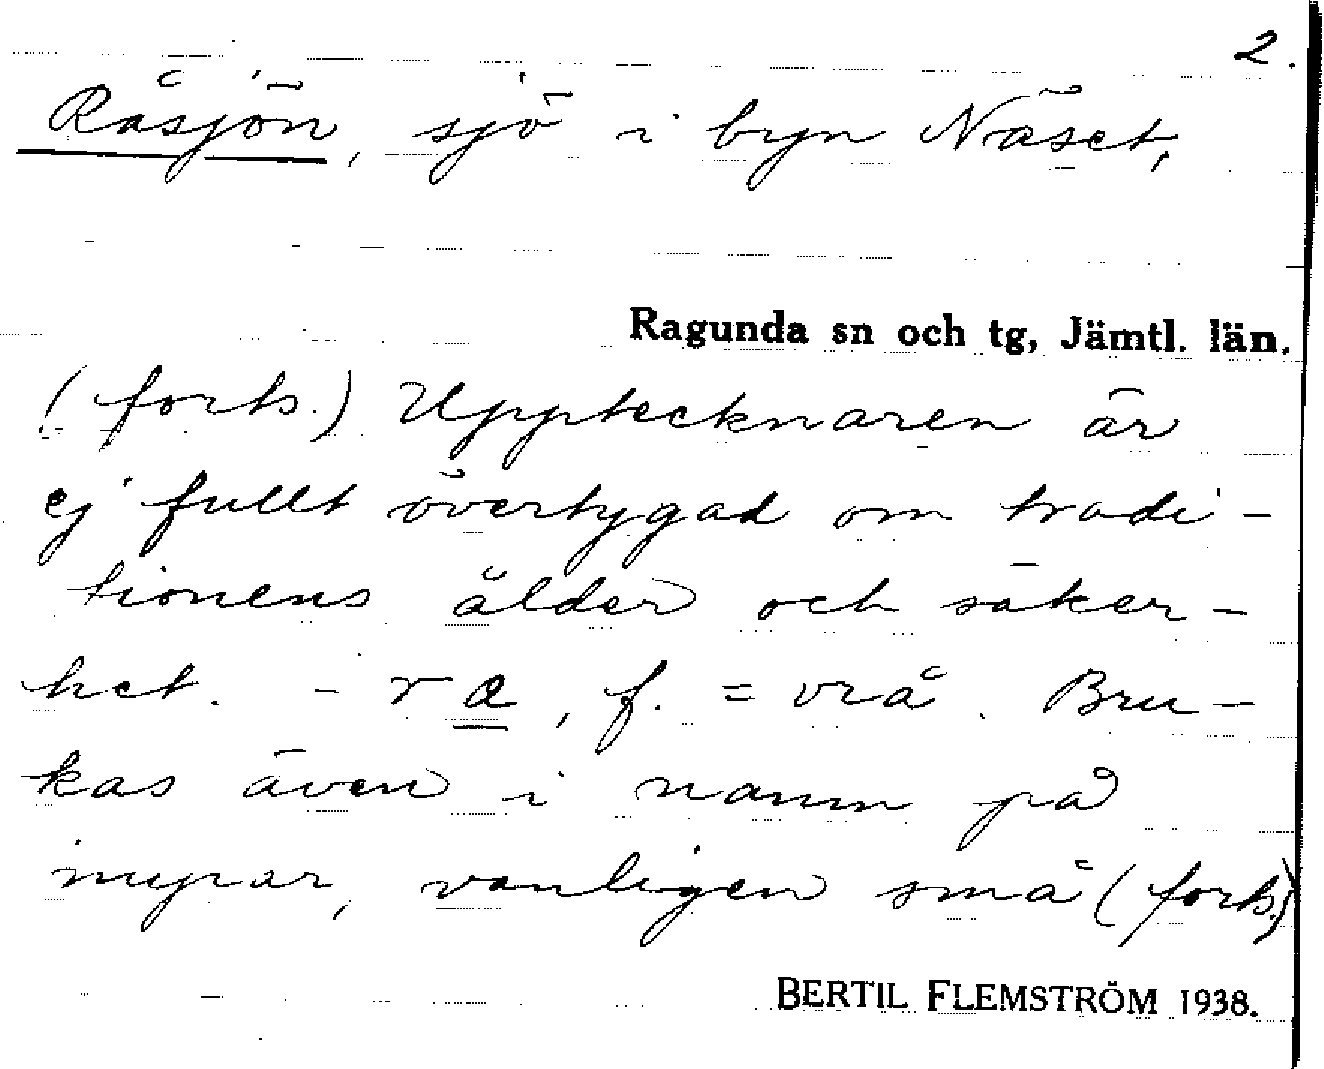 2.
Råsjön, sjö i byn Näset,
Ragunda sn och tg, Jämtl. län.
(forts.) Upptecknaren är
ej fullt övertygad om tradi-
tionens ålder och säker-
het. - ra, f. = vrå. Bru-
kas även i namn på
myrar, vanligen små (forts.)
BERTIL FLEMSTRÖM 1938.